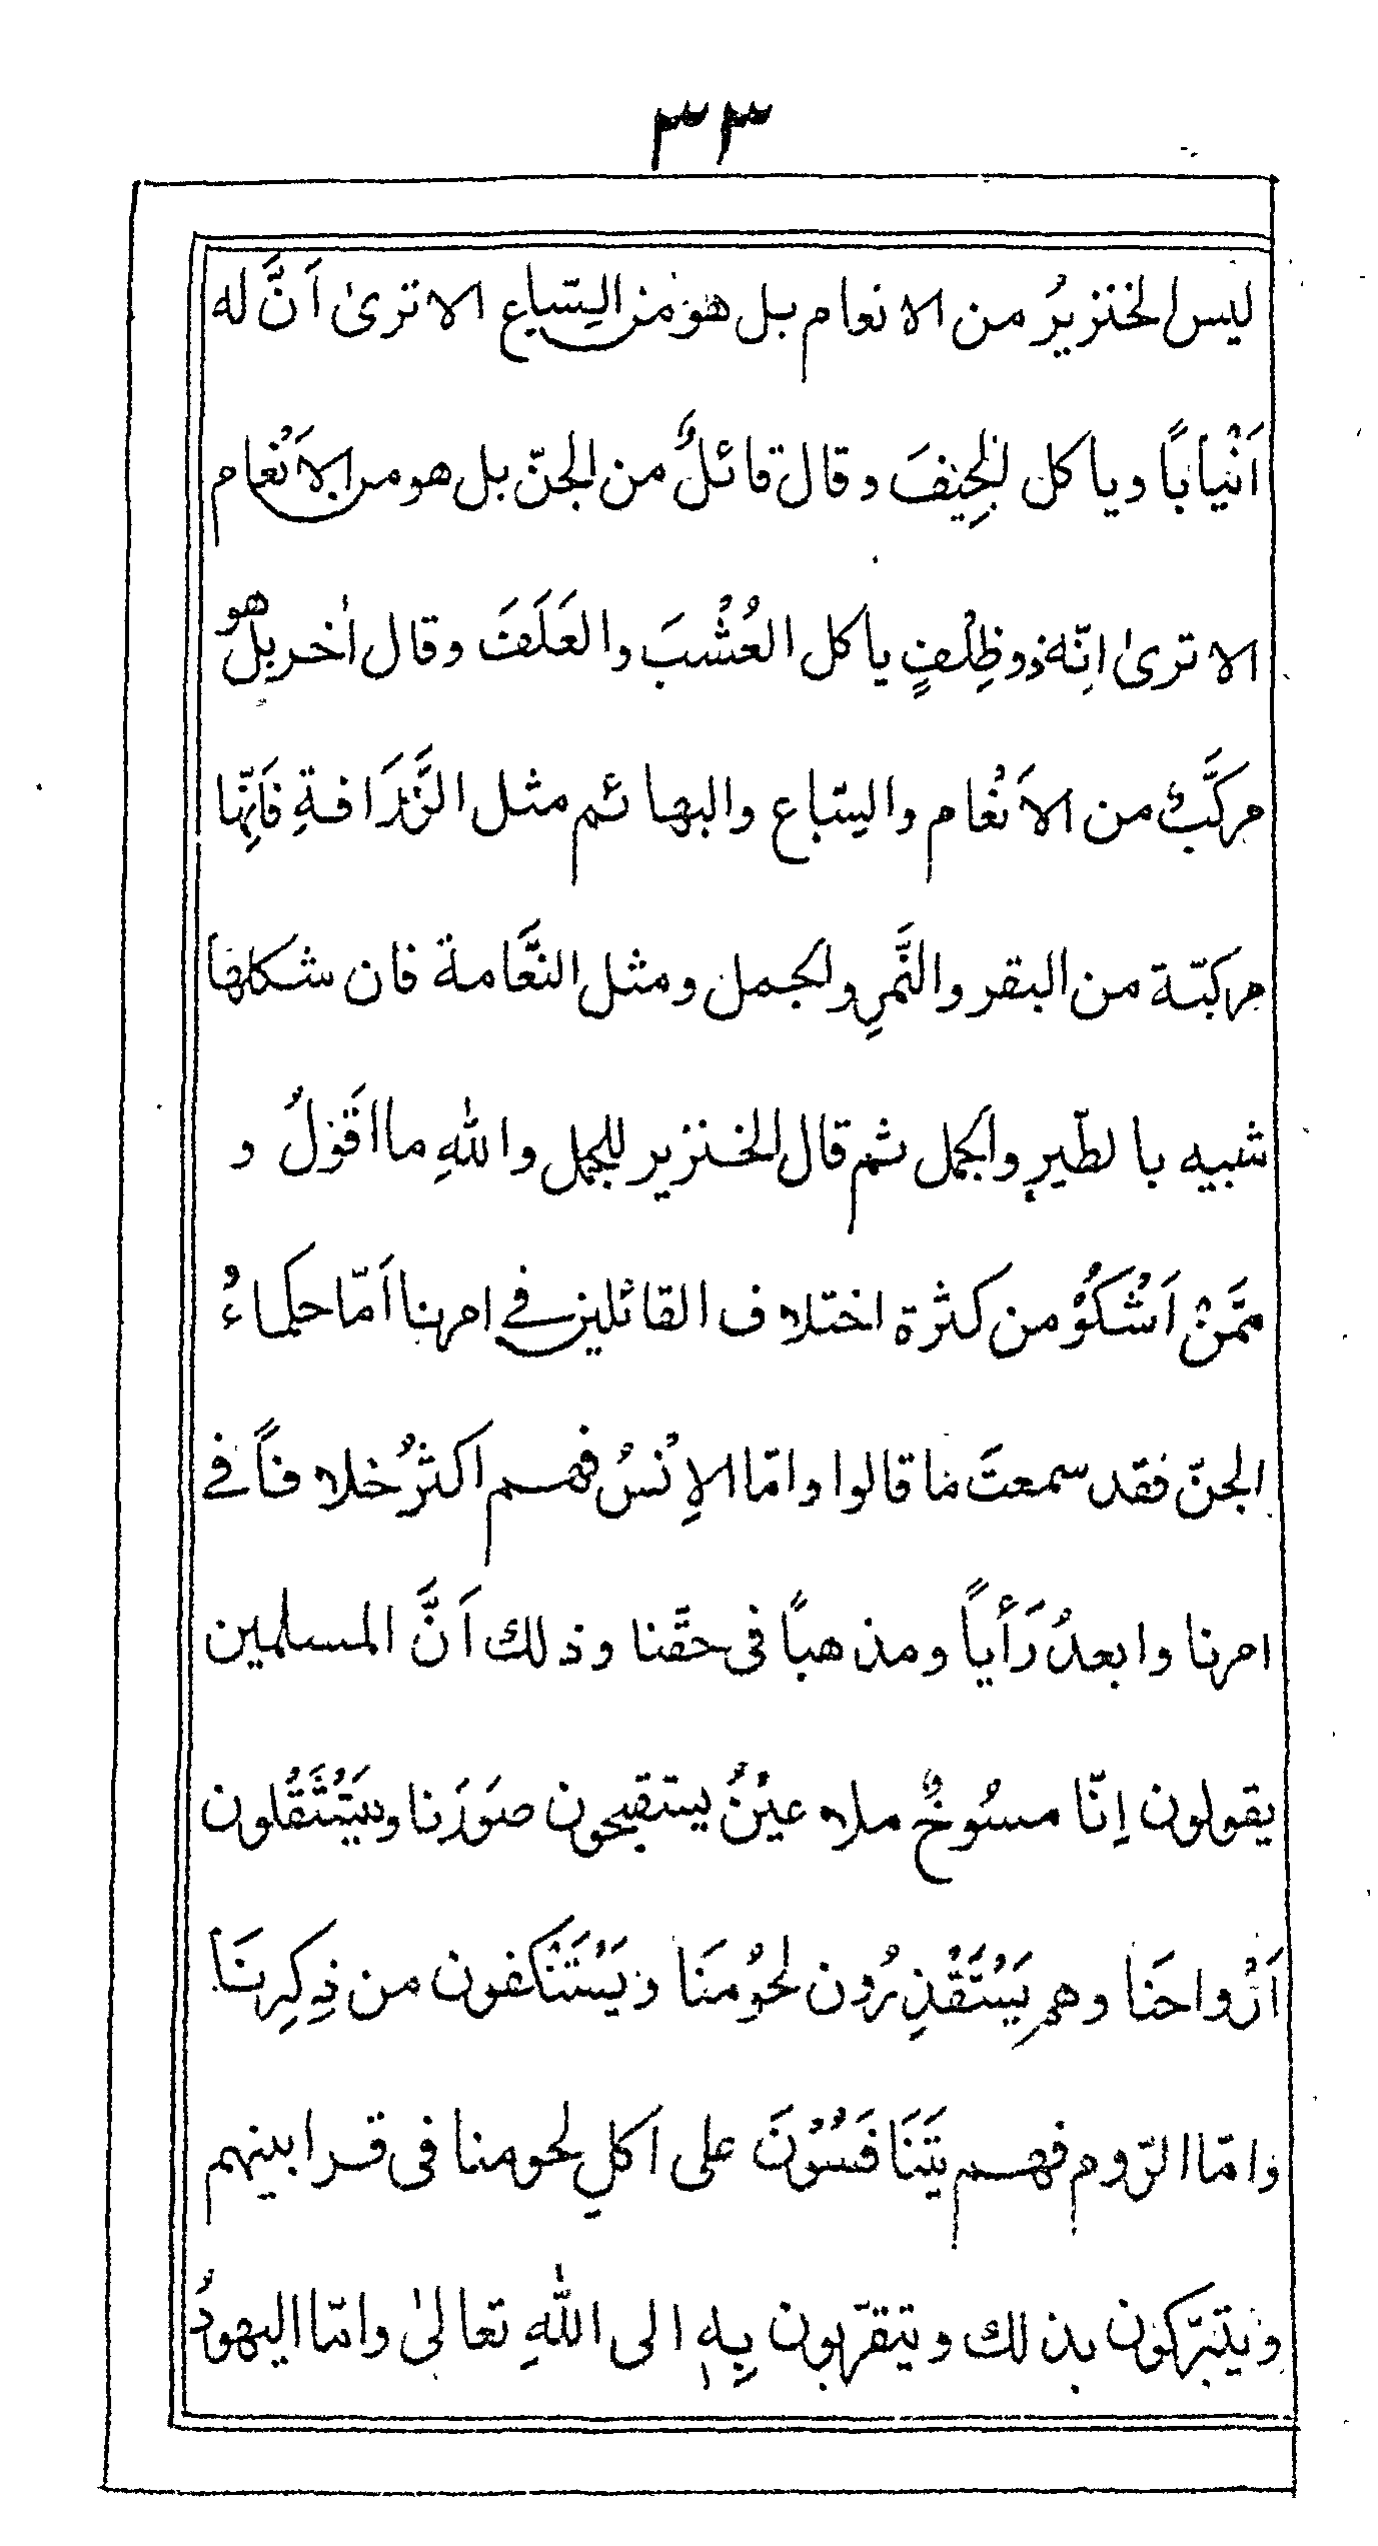 ٣٣
ليس الخنزيرُ من الانعام بل هو من السّباع الا ترىٰ اَنَّ له
اَنْياباً وياكل الجِيَفَ وقال قائلٌ من الجنّ بل هو من الاَنْعام
الا ترىٰ انّهٗ ذو ظِلْفٍ ياكل العُشْبَ والعَلَفَ وقال اٰخر بل هو
مركَّبٌ من الاَنْعام والسّباع والبهائم مثل الزَّرَافةِ فَاِنّها
مركبّة من البقر والنَّمرِ والجمل ومثل النَّعَامة فان شكلها
شبيه بالطّيرِ والجمل ثم قال الخنزير للجمل واللّٰهِ ما اقَوْلُ و
مِمَّنْ اَشْكُوْ من كثرة اختلاف القائلين في امرنا اَمّا حكماءُ
الجنّ فقد سمعتَ ما قالوا وامّا الاِنْسُ فهم اكثرُ خلافاً في
امرنا وابعدُ رَأياً ومذهباً فى حقَّنا وذلك اَنَّ المسلمين
يقولون اِنّا مسُوخٌ ملاعيْنُ يستقبحون صوَرَنا ويَسْتَثْقُلون
اَرْواحَنا وهم يَسْتَقْذِرُون لحُوْمنَا ويَسْتَنْكفون من ذِكِرنَا
وامّا الرّوم فهم يَتَنَافَسُوْنَ على اكلِ لحومنا فى قرابينهم
ويتبرّكون بذلك ويتقرّبون بِهٖ الى اللّٰهِ تعالىٰ وامّا اليهودُ